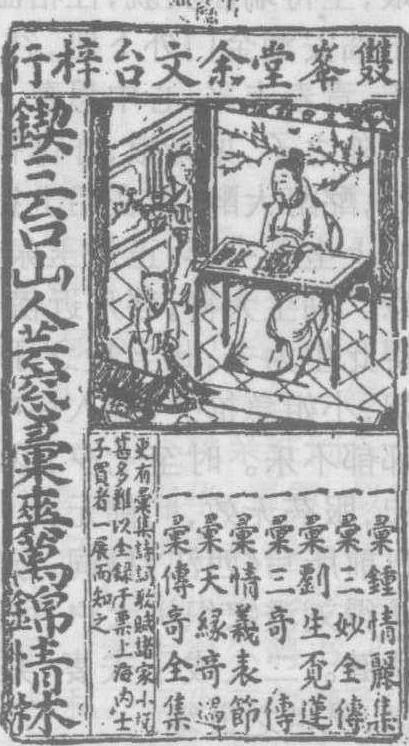 雙峯堂余文台梓行
鍥三台山人芸窓彙爽萬錦情林
一彙鍾情麗集
一彙三妙全傳
一彙劉生覓蓮
一彙三奇傳
一彙情義表節
一彙天緣奇遇
一彙傳奇全集
更有彙集詩詞歌賦諸家小說
甚多難以全録于票上海内士
子買者一展而知之